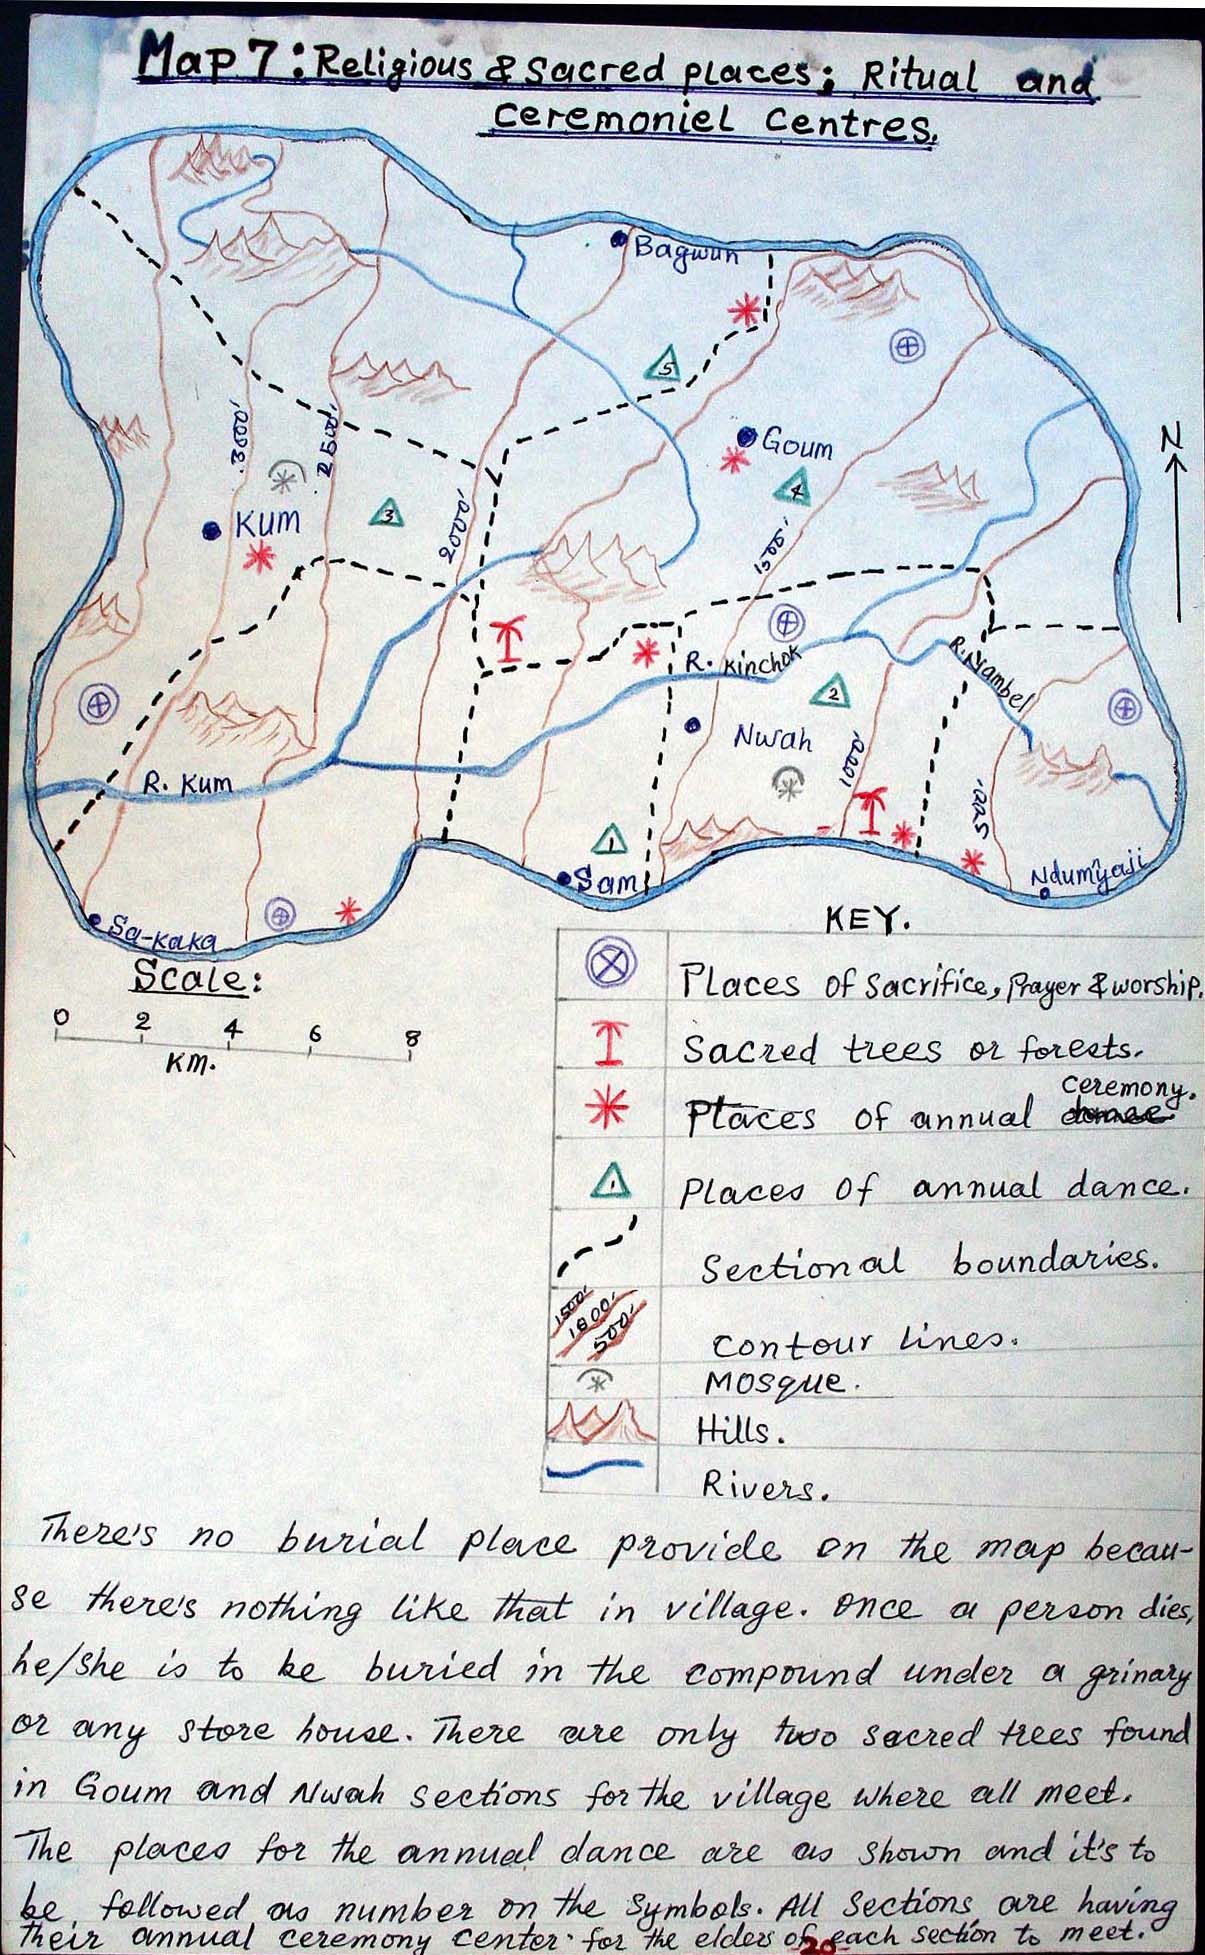 Map 7: Religious & Sacred places; Ritual and
Ceremoniel Centres.
Bagwun
5
Goum
N
3000'
2500'
4
3
KUM
2000'
1500'
R. Kinchok
R. Nambel
2
Nwah
R. Kum
1000'
500'
1
Sam
Ndumyaji
Sa-kaka
KEY.
Scale:
0 2 4 6 8
KM.
Places of Sacrifice, Prayer & worship.
Sacred trees or forests.
ceremony.
Places of annual dance
1
Places of annual dance.
Sectional boundaries.
1500'
1000'
500'
Contour lines.
Mosque.
Hills.
Rivers.
There's no burial place provide on the map becau-
se there's nothing like that in village. Once a person dies,
he/she is to be buried in the compound under a grinary
or any store house. There are only two sacred trees found
in Goum and Nwah sections for the village where all meet.
The places for the annual dance are as shown and it's to
be followed as number on the symbols. All Sections are having
their annual ceremony center for the elders of each section to meet.
20